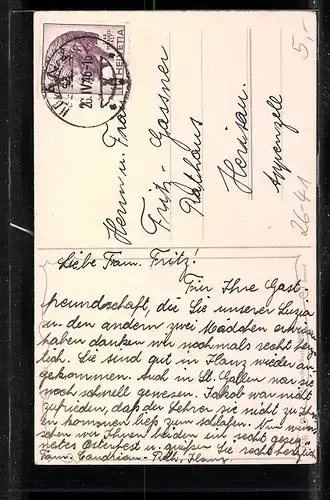 HELVETIA
ILANZ
26.IV.46-16
5,-
Herrn u. Frau
Fritz-Gassner
Rathaus
Herisau.
Appenzell
26-41
Liebe Fam. Fritz!
Für Ihre Gast-
freundschaft, die Sie unserer Luzia
u. den andern zwei Mädchen erwiesen
haben danken wir nochmals recht herz-
lich. Sie sind gut in Ilanz wieder an-
gekommen. Auch in St. Gallen war sie
noch schnell gewesen. Jakob war nicht
zufrieden, daß der Lehrer sie nicht zu Ih-
nen kommen ließ zum schlafen. Nun wün-
schen wir Ihnen beiden ein recht geseg-
netes Osterfest u. grüßen Sie recht herzlich
Fam. Candrian- Ilanz.